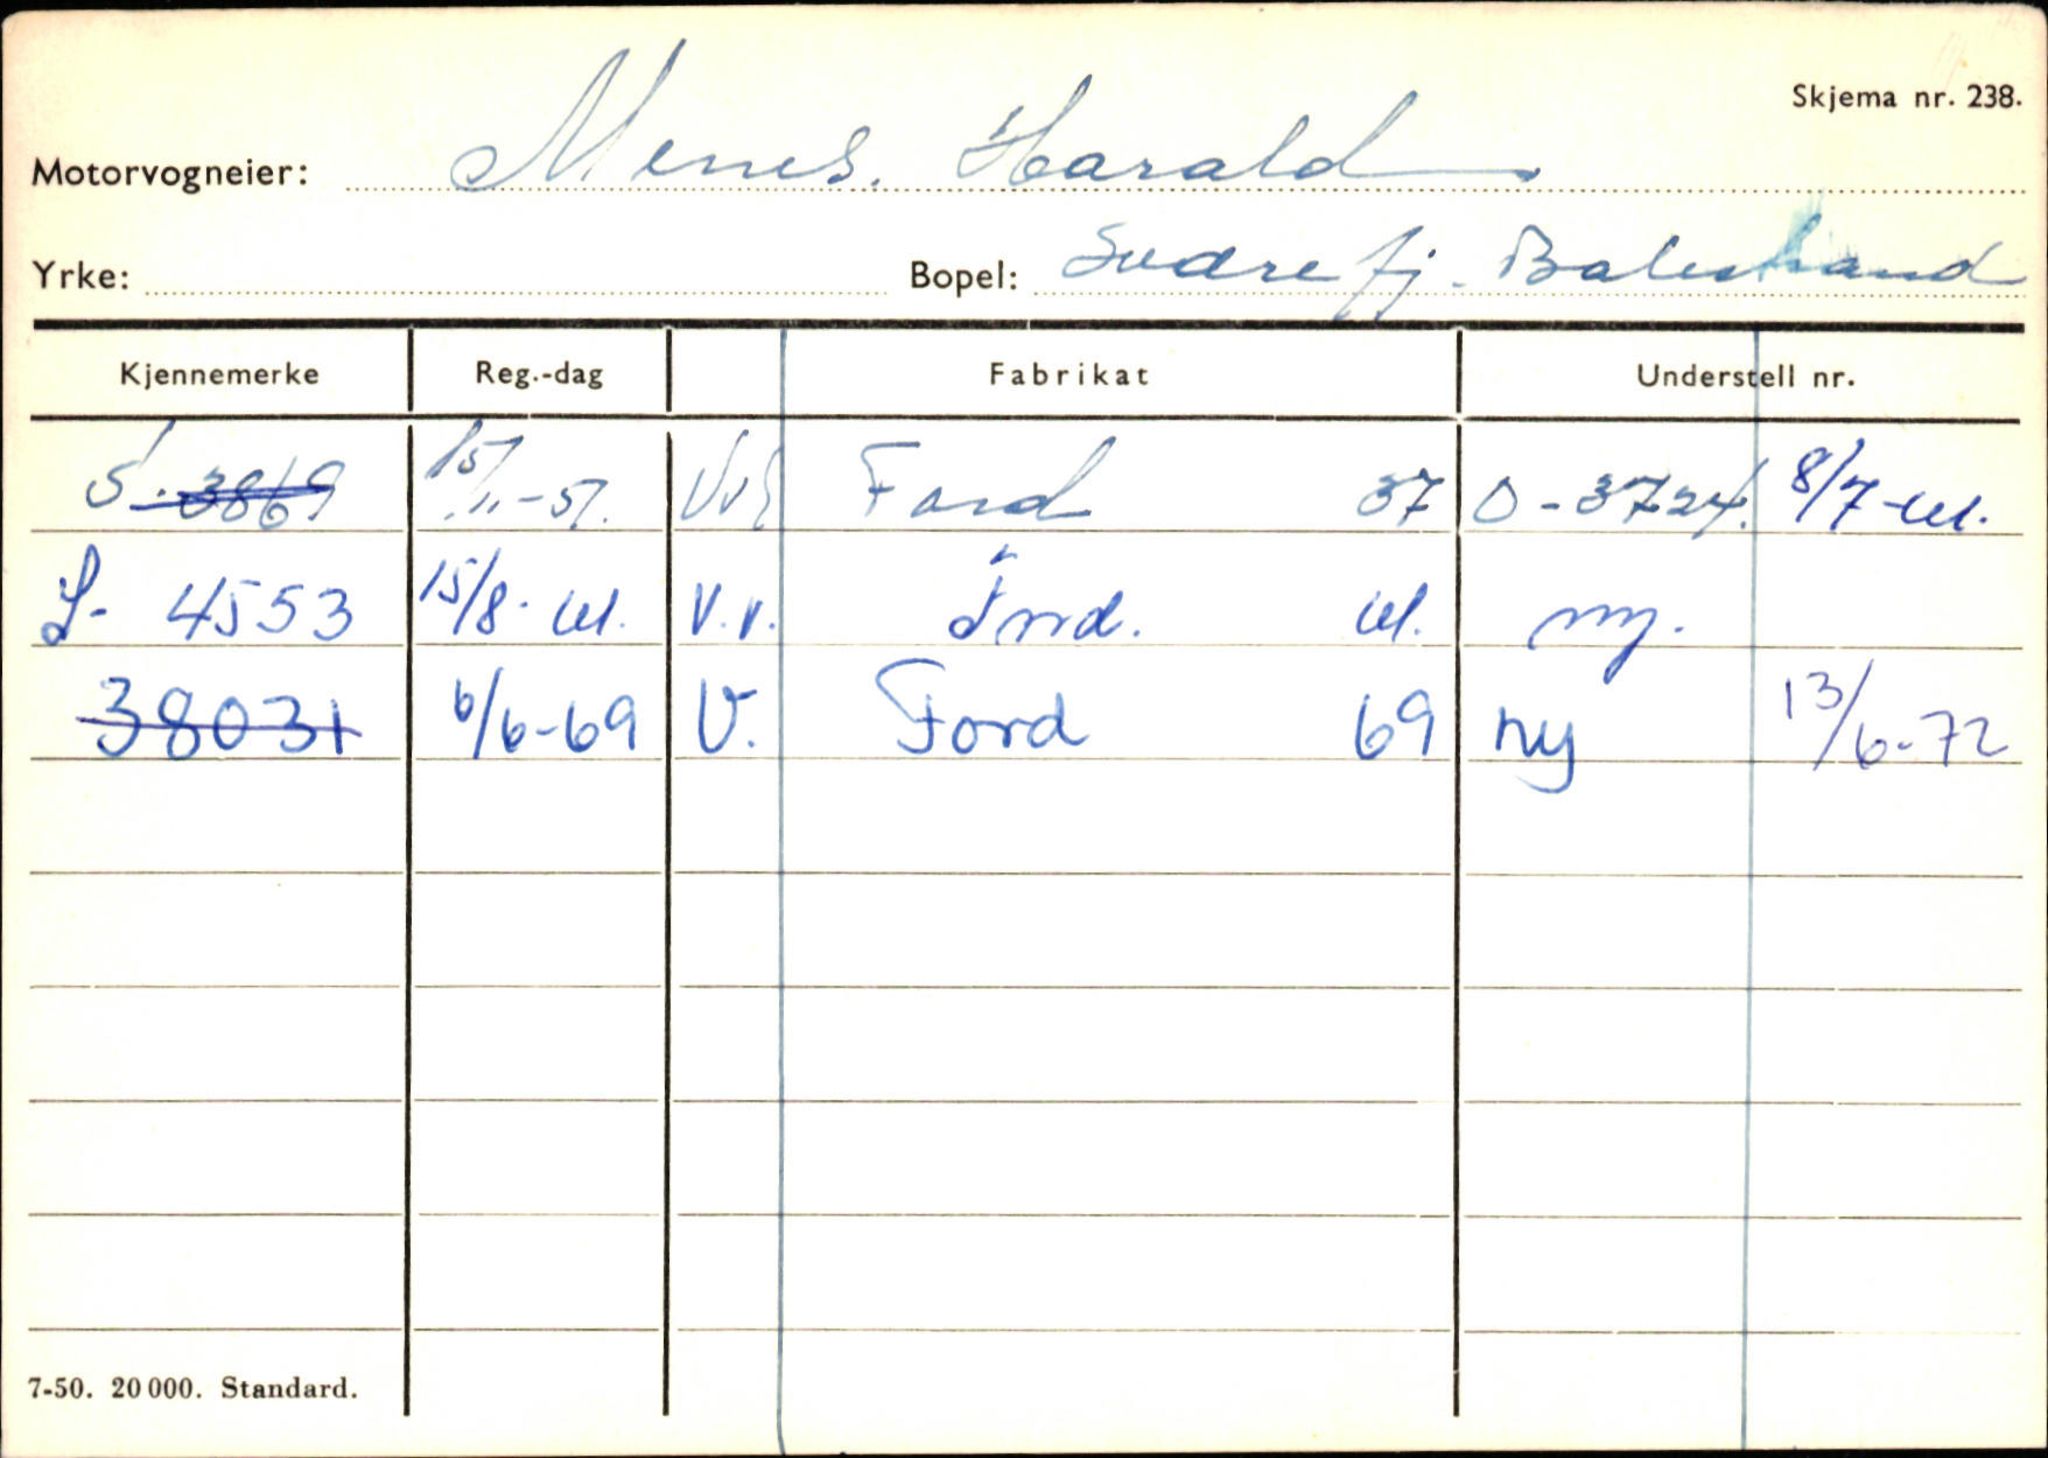 Skjema nr. 238.
Motorvogneier: Menes. Harald
Yrke: Bopel: Sværefj. Balestrand
Kjennemerke Reg.-dag Fabrikat Understell nr.
S-3869 15/11-57. Vv Ford 37 O-3724. 8/7-61.
S- 4553 15/8-61. V.v. Ford. 61. ny.
38031 6/6-69 V. Ford 69 ny 13/6-72
7-50. 20 000. Standard.